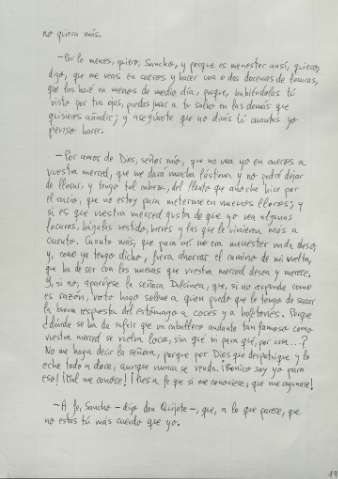 no quiera más.
—Por lo menos, quiero, Sancho, y porque es menester ansí, quiero,
digo, que me veas en cueros y hacer una o dos docenas de locuras,
que las haré en menos de media hora, porque, habiéndolas tú
visto por tus ojos, puedas jurar a tu salvo en las demás que
quisieres añadir; y asegúrote que no dirás tú cuantas yo
pienso hacer.
—Por amor de Dios, señor mío, que no vea yo en cueros a
vuestra merced, que me dará mucha lástima y no podré dejar
de llorar, y tengo tal cabeza, del llanto que anoche hice por
el rucio, que no estoy para meterme en nuevos lloros; y
si es que vuestra merced gusta de que yo vea algunas
locuras, hágalas vestido, breves y las que le vinieren más a
cuento. Cuanto más, que para mí no era menester nada deso,
y, como ya tengo dicho, fuera ahorrar el camino de mi vuelta,
que ha de ser con las nuevas que vuestra merced desea y merece.
Y, si no, aparéjese la señora Dulcinea, que, si no responde como
es razón, voto hago solene a quien puedo que le tengo de sacar
la buena respuesta del estómago a coces y a bofetones. Porque
¿dónde se ha de sufrir que un caballero andante tan famoso como
vuestra merced se vuelva loco, sin qué ni para qué, por una...?
No me haga decir la señora, porque por Dios que despotrique y lo
eche todo a doce, aunque nunca se venda. ¡Bonico soy yo para
eso! ¡Mal me conoce! ¡Pues a fe que si me conociese, que me ayunase!
—A fe, Sancho —dijo don Quijote—, que, a lo que parece, que
no estás tú más cuerdo que yo.